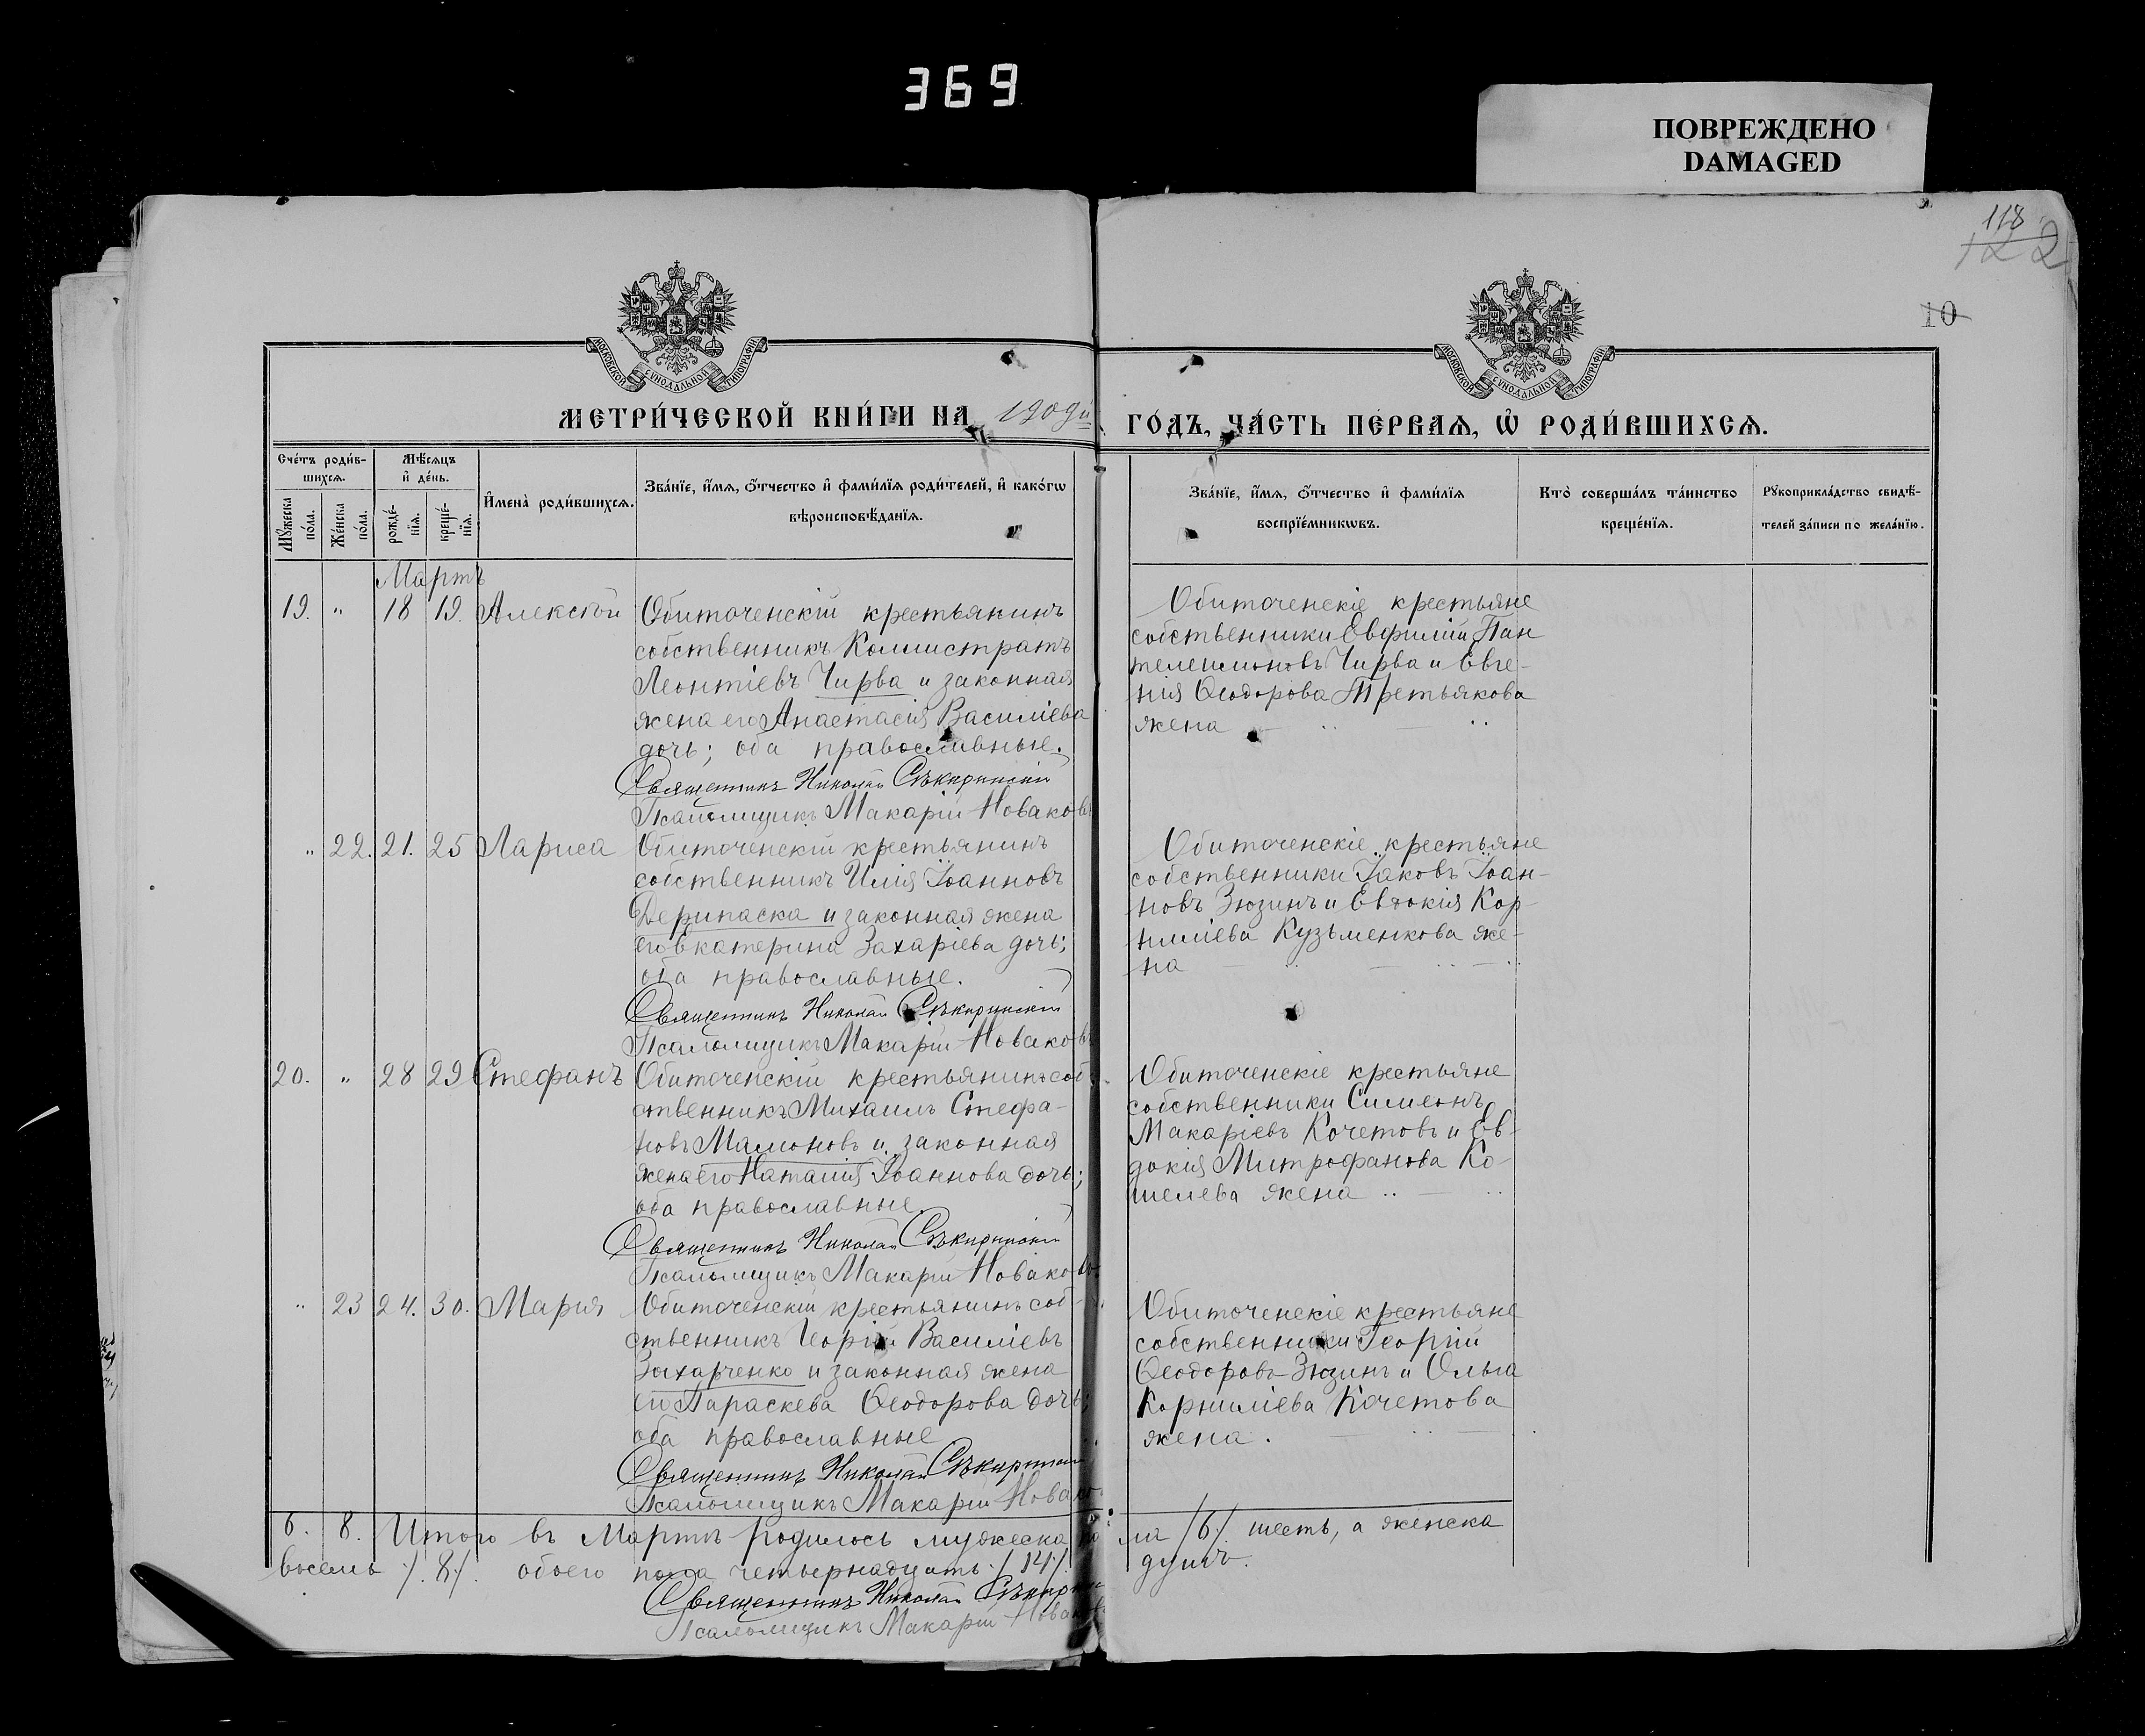 369
ПОВРЕЖДЕНО
DAMAGED
118
122
10
МОСКОВСКОЙ СѴНОДАЛЬНОЙ ТИПОГРАФІИ
МОСКОВСКОЙ СѴНОДАЛЬНОЙ ТИПОГРАФІИ
МЕТРИ́ЧЕСКОЙ КНИ́ГИ НА 1909й ГО́ДЪ, ЧА́СТЬ ПЕ́РВАѦ, Ѡ РОДИ́ВШИХСѦ.
Сче́тъ роди́в-
шихсѧ.
Мѣ́сѧцъ
и де́нь.
Мꙋ́жеска
по́ла.
Же́нска
по́ла.
рожде́-
нїѧ.
креще́-
нїѧ.
Имена̀ роди́вшихсѧ.
Зва́нїе, и́мѧ, ѻ́тчество и фами́лїѧ роди́телей, и како́гѡ
вѣроисповѣ́данїѧ.
Зва́нїе, и́мѧ, ѻ́тчество и фами́лїѧ
воспрїе́мникѡвъ.
Кто̀ соверша́лъ та́инство
креще́нїѧ.
Рꙋкоприкла́дство свидѣ́-
телей за́писи по жела́нїю.
Мартъ
19. " 18 19. Алексѣй
Обиточенскій крестьянинъ
собственникъ Коллистратъ
Леонтіевъ Чирва и законная
жена его Анастасія Василіева
дочь; оба православные.
Священникъ Николай Сѣкиринскій
Псаломщикъ Макарій Новаковъ
Обиточенскіе крестьяне
собственники Евфимій Пан
телеимоновъ Чирва и Евге-
нія Ѳеодорова Третьякова
жена
" 22. 21. 25 Лариса
Обиточенскій крестьянинъ
собственникъ Илія Іоанновъ
Дерипаска и законная жена
его Екатерина Захаріева дочь;
оба православные.
Священникъ Николай Сѣкиринскій
Псаломщикъ Макарій Новаковъ
Обиточенскіе крестьяне
собственники Іаковъ Іоан-
новъ Зюзинъ и Евдокія Кор-
ниліева Кузьменкова же-
на
20. " 28 29 Стефанъ
Обиточенскій крестьянинъ соб
ственникъ Михаилъ Стефа-
новъ Мамоновъ и законная
жена его Наталія Іоаннова дочь;
оба православные.
Священникъ Николай Сѣкиринскій
Псаломщикъ Макарій Новаковъ
Обиточенскіе крестьяне
собственники Симеонъ
Макаріевъ Кочетовъ и Ев-
докія Митрофанова Ко-
шелева жена
" 23 24. 30. Марія
Обиточенскій крестьянинъ соб-
ственникъ Георгій Василіевъ
Захарченко и законная жена
его Параскева Ѳеодорова дочь;
оба православные
Священникъ Николай Сѣкиринскій
Псаломщикъ Макарій Новако
Обиточенскіе крестьяне
собственники Георгій
Ѳеодоровъ Зюзинъ и Ольга
Корниліева Кочетова
жена.
6. 8. Итого въ Мартѣ родилось мужеска пола /6/. шесть, а женска
восемь /.8./. обоего пола четырнадцать /14/. душъ.
Священникъ Николай Сѣкирин
Псаломщикъ Макарій Новаков